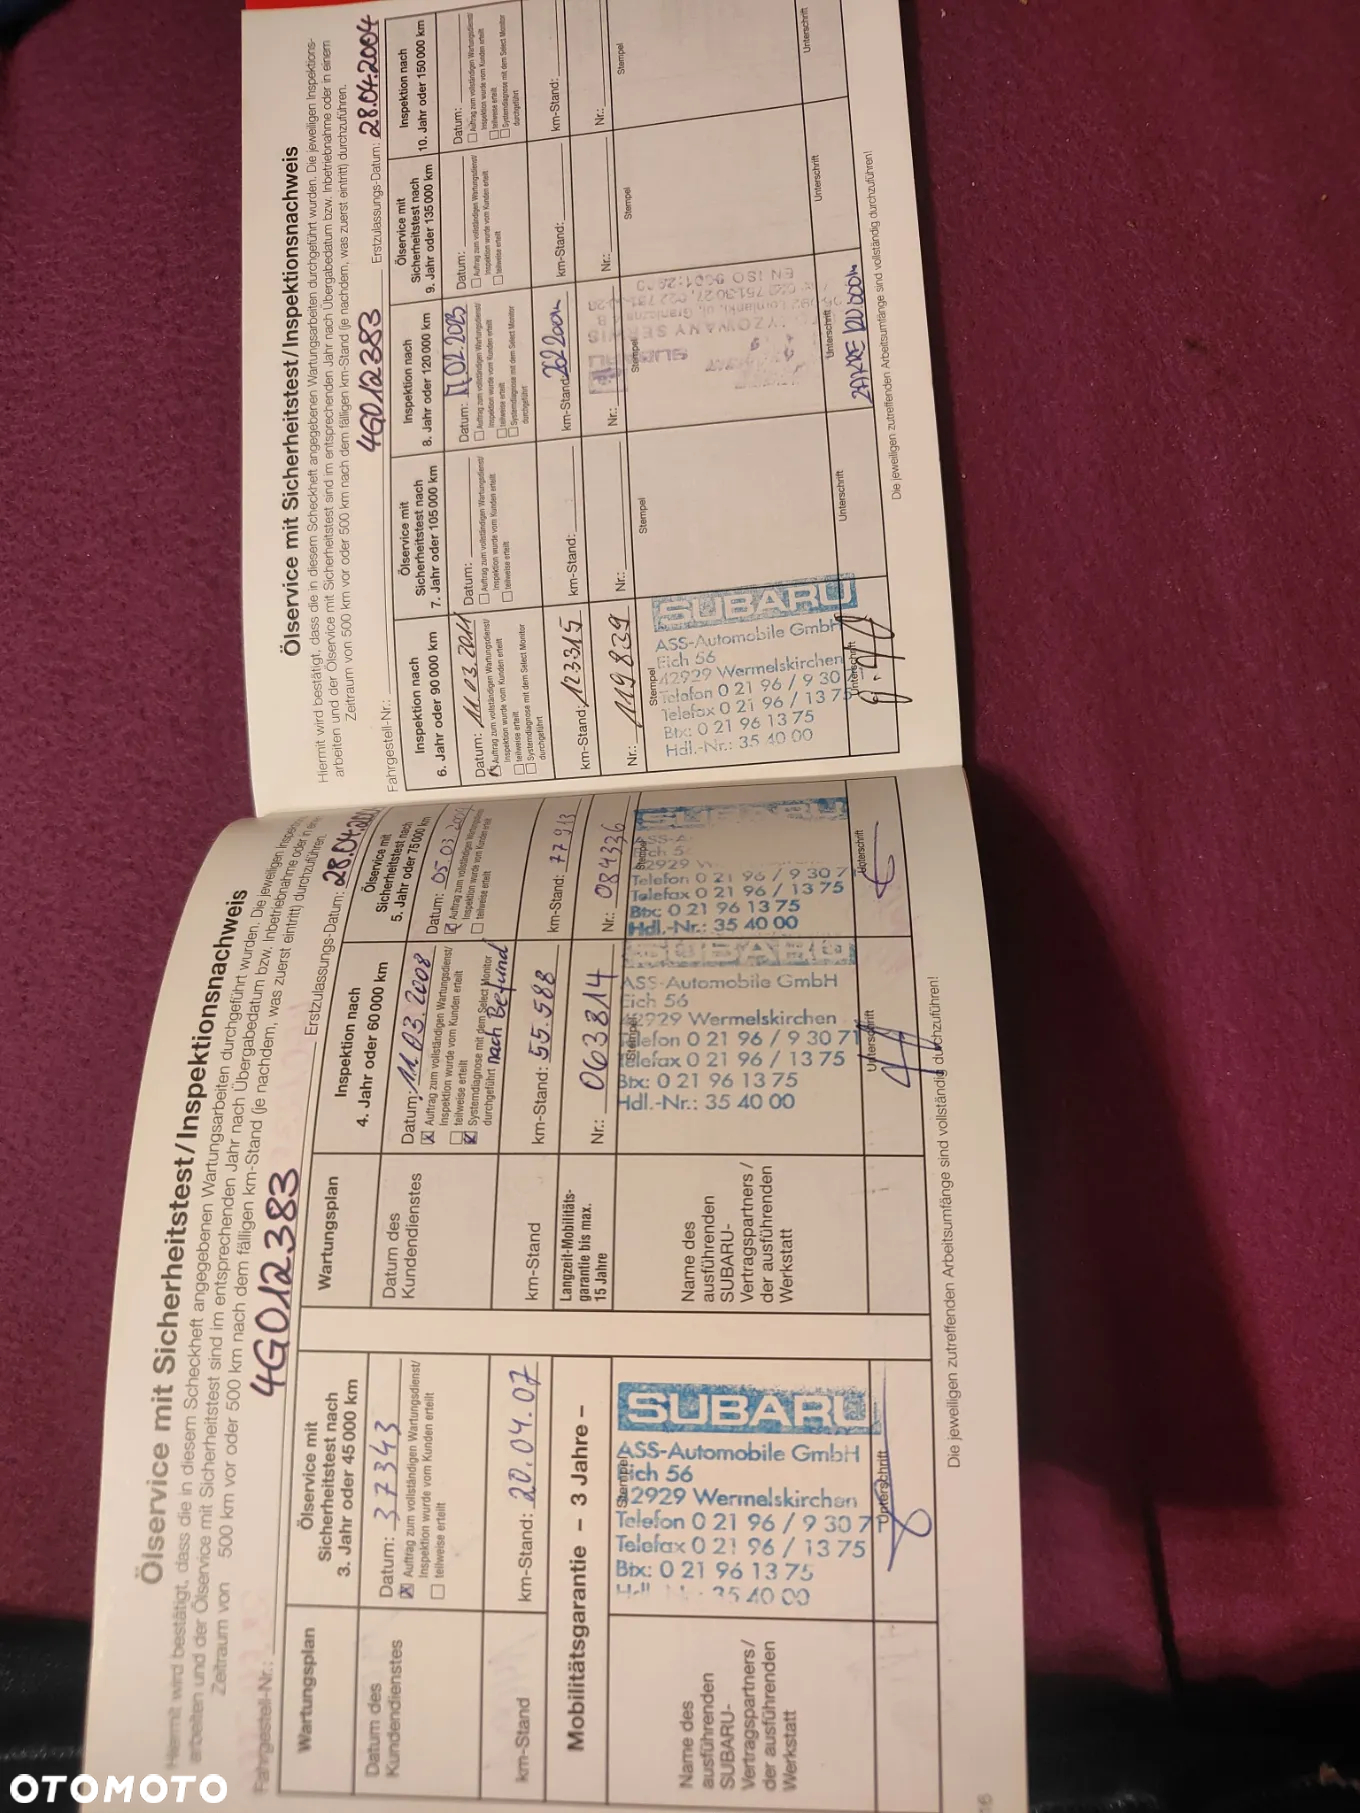 Ölservice mit Sicherheitstest/Inspektionsnachweis
Hiermit wird bestätigt, dass die in diesem Scheckheft angegebenen Wartungsarbeiten durchgeführt wurden. Die jeweiligen
arbeiten und der Ölservice mit Sicherheitstest sind im entsprechenden Jahr nach Übergabedatum bzw. Inbetriebnahme oder in
Zeitraum von 500 km vor oder 500 km nach dem fälligen km-Stand (je nachdem, was zuerst eintritt) durchzuführen.
Fahrgestell-Nr.: 4G012383 Erstzulassungs-Datum: 28.04.
Wartungsplan
Ölservice mit
Sicherheitstest nach
3. Jahr oder 45000 km
Datum des
Kundendienstes
Datum: 37343
Auftrag zum vollständigen Wartungsdienst/
Inspektion wurde vom Kunden erteilt
teilweise erteilt
km-Stand
km-Stand: 20.04.07
Mobilitätsgarantie – 3 Jahre –
Name des
ausführenden
SUBARU-
Vertragspartners/
der ausführenden
Werkstatt
Stempel
SUBARU
ASS-Automobile GmbH
Eich 56
42929 Wermelskirchen
Telefon 0 21 96 / 9 30 7
Telefax 0 21 96 / 13 75
Btx: 0 21 96 13 75
35 40 00
Unterschrift
Wartungsplan
Inspektion nach
4. Jahr oder 60000 km
Datum des
Kundendienstes
Datum: 11.03.2008
Auftrag zum vollständigen Wartungsdienst/
Inspektion wurde vom Kunden erteilt
teilweise erteilt
Systemdiagnose mit dem Select Monitor
durchgeführt nach Befund
km-Stand
km-Stand: 55.588
Langzeit-Mobilitäts-
garantie bis max.
15 Jahre
Nr.: 063814
Name des
ausführenden
SUBARU-
Vertragspartners/
der ausführenden
Werkstatt
Stempel
SUBARU
ASS-Automobile GmbH
Eich 56
42929 Wermelskirchen
Telefon 0 21 96 / 9 30 71
Telefax 0 21 96 / 13 75
Btx: 0 21 96 13 75
Hdl.-Nr.: 35 40 00
Unterschrift
Ölservice mit
Sicherheitstest nach
5. Jahr oder 75000 km
Datum: 05.03.
Auftrag zum vollständigen
Inspektion wurde vom Kunden erteilt
teilweise erteilt
km-Stand: 77913
Nr.: 084336
Stempel
SUBARU
Telefon 0 21 96 / 9 30 7
Telefax 0 21 96 / 13 75
Btx: 0 21 96 13 75
Hdl.-Nr.: 35 40 00
Unterschrift
Die jeweiligen zutreffenden Arbeitsumfänge sind vollständig durchzuführen!
16
Ölservice mit Sicherheitstest/Inspektionsnachweis
Hiermit wird bestätigt, dass die in diesem Scheckheft angegebenen Wartungsarbeiten durchgeführt wurden. Die jeweiligen Inspektions-
arbeiten und der Ölservice mit Sicherheitstest sind im entsprechenden Jahr nach Übergabedatum bzw. Inbetriebnahme oder in einem
Zeitraum von 500 km vor oder 500 km nach dem fälligen km-Stand (je nachdem, was zuerst eintritt) durchzuführen.
Fahrgestell-Nr.: 4G012383 Erstzulassungs-Datum: 28.04.2004
Inspektion nach
6. Jahr oder 90000 km
Datum: 11.03.2011
Auftrag zum vollständigen Wartungsdienst/
Inspektion wurde vom Kunden erteilt
teilweise erteilt
Systemdiagnose mit dem Select Monitor
durchgeführt
km-Stand: 123315
Nr.: 119839
Stempel
SUBARU
ASS-Automobile GmbH
Eich 56
42929 Wermelskirchen
Telefon 0 21 96 / 9 30
Telefax 0 21 96 / 13 75
Btx: 0 21 96 13 75
Hdl.-Nr.: 35 40 00
Unterschrift
Ölservice mit
Sicherheitstest nach
7. Jahr oder 105000 km
Datum:
Auftrag zum vollständigen Wartungsdienst/
Inspektion wurde vom Kunden erteilt
teilweise erteilt
km-Stand:
Nr.:
Stempel
Unterschrift
Inspektion nach
8. Jahr oder 120000 km
Datum: 17.02.2023
Auftrag zum vollständigen Wartungsdienst/
Inspektion wurde vom Kunden erteilt
teilweise erteilt
Systemdiagnose mit dem Select Monitor
durchgeführt
km-Stand:
Nr.:
Stempel
SUBARU
EN ISO 9001:
Unterschrift
Ölservice mit
Sicherheitstest nach
9. Jahr oder 135000 km
Datum:
Auftrag zum vollständigen Wartungsdienst/
Inspektion wurde vom Kunden erteilt
teilweise erteilt
km-Stand:
Nr.:
Stempel
Unterschrift
Inspektion nach
10. Jahr oder 150000 km
Datum:
Auftrag zum vollständigen Wartungsdienst/
Inspektion wurde vom Kunden erteilt
teilweise erteilt
Systemdiagnose mit dem Select Monitor
durchgeführt
km-Stand:
Nr.:
Stempel
Unterschrift
Die jeweiligen zutreffenden Arbeitsumfänge sind vollständig durchzuführen!
OTOMOTO